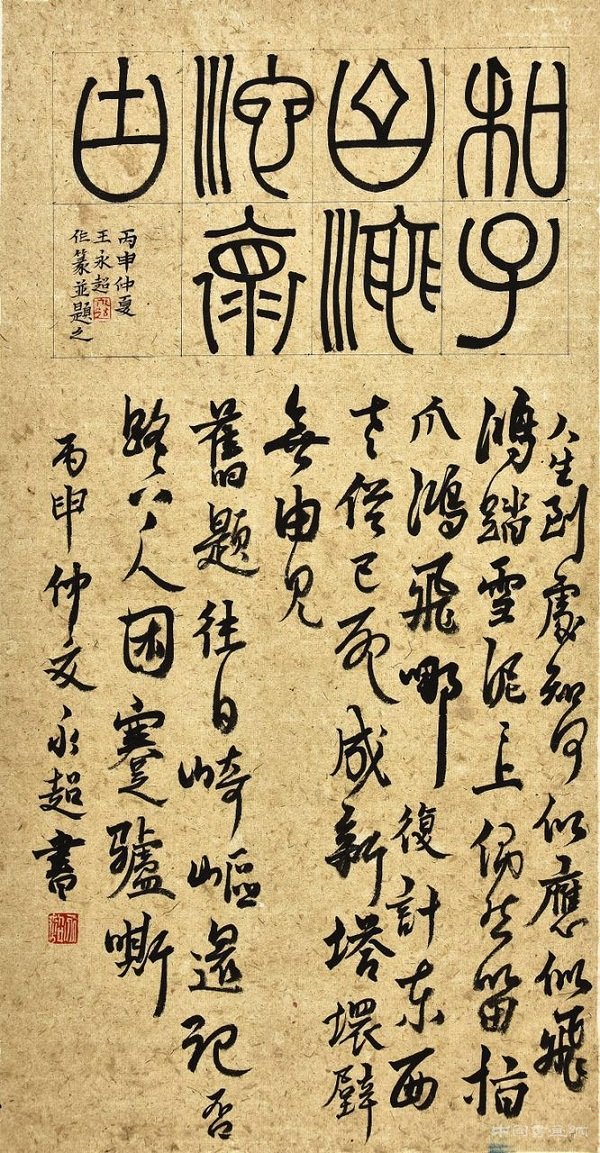 和子
由澠
池懷
古
丙申仲夏
王永超
作篆並題之
人生到處知何似應似飛
鴻踏雪泥上偶然留指
爪鴻飛哪復計東西
老僧已死成新塔壞壁
無由見
舊題往日崎嶇還記否
路長人困蹇驢嘶
丙申仲夏永超書